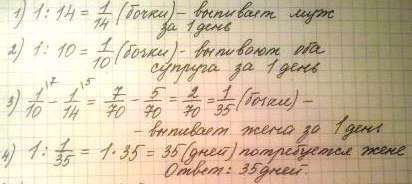 1) 1 : 14 = 1/14 (бочки) – выпивает муж
за 1 день
2) 1 : 10 = 1/10 (бочки) – выпивают оба
супруга за 1 день
3) 1/10 \7 – 1/14 \5 = 7/70 – 5/70 = 2/70 = 1/35 (бочки) –
– выпивает жена за 1 день
4) 1 : 1/35 = 1 · 35 = 35 (дней) потребуется жене
Ответ: 35 дней.